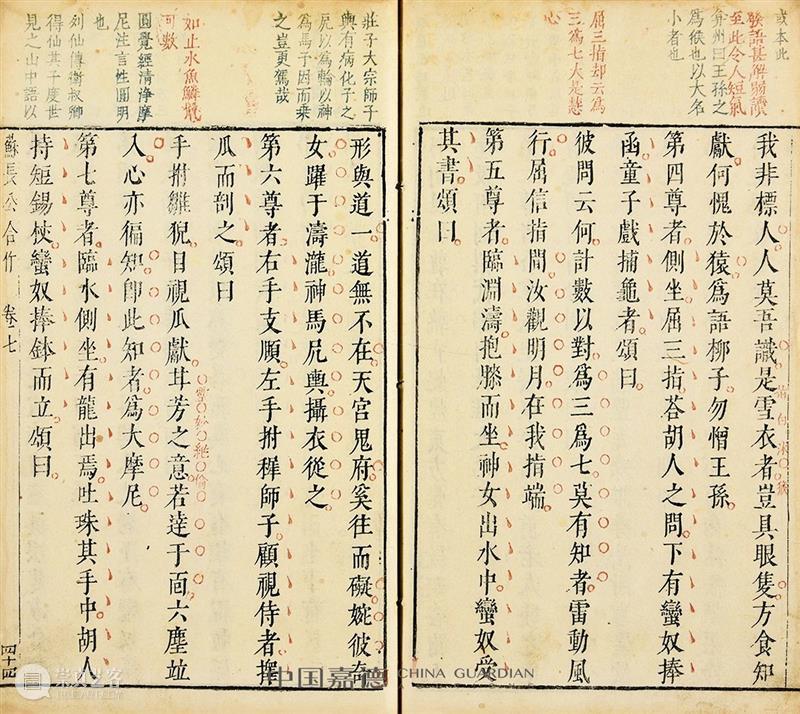 或本此
語甚解頤讀
至此令人短氣
弇州曰王孫之
為猴也以大名
小者也
屈三指却云為
三為七大是慧
心
我非標人人莫吾識是雪衣者豈具眼隻方食知
獻何愧於猿為語柳子勿憎王孫
第四尊者側坐屈三指荅胡人之問下有蠻奴捧
函童子戲捕龜者頌曰
彼問云何計數以對為三為七莫有知者雷動風
行屈信指間汝觀明月在我指端
第五尊者臨淵濤抱膝而坐神女出水中蠻奴受
其書頌曰
莊子大宗師子
輿有病化子之
尻以為輪以神
為馬子因而乘
之豈更駕哉
如止水魚鱗
可數
圓覺經清淨摩
尼注言性圓明
也
列仙傳衛叔卿
得仙其子度世
見之山中語以
形與道一道無不在天宮鬼府奚往而礙婉彼奇
女躍于濤瀧神馬尻輿攝衣從之
第六尊者右手支頤左手拊穉師子顧視侍者擇
瓜而剖之頌曰
手拊雛猊目視瓜獻甘芳之意若達于面六塵竝
妙絕倫
入心亦徧知即此知者為大摩尼
第七尊者臨水側坐有龍出焉吐珠其手中胡人
持短錫杖蠻奴捧鉢而立頌曰
蘇長公合作 卷七
四十四
中国嘉德 CHINA GUARDIAN